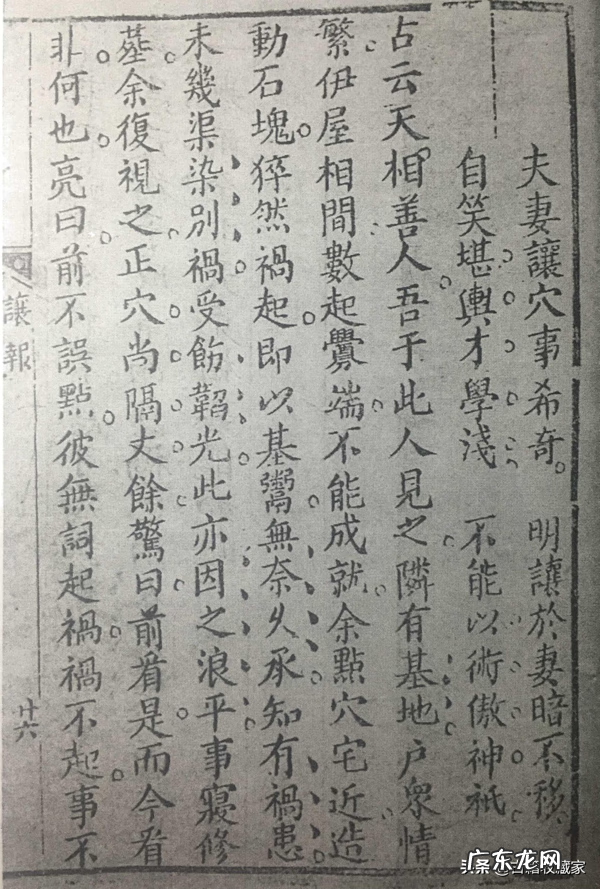 夫妻讓穴事希奇。 明讓於妻暗不移。
自笑堪輿才學淺 不能以術傲神祇。
占云天相善人。吾于此人見之。隣有基地。戶衆情
繁。伊屋相間數起釁端。不能成就。余點穴宅近造
動石塊。猝然禍起。即以基鬻無奈久承知有禍患
未幾渠染別禍受飭韜光此亦因之浪平事寢修
墓。余復視之。正穴尚隔丈餘驚曰。前看是。而今看
非何也。亮曰。前不誤點。彼無詞起禍。禍不起。事不
讓報
廿六
头条@古籍收藏家
广东龙网